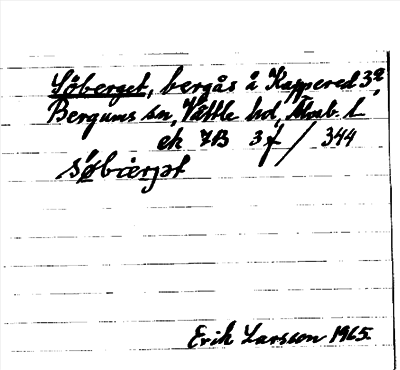 Söberget, bergås å Kappered 3:2,
Bergums sn, Vättle hd, Älvsb. l.
ek 7B 3f / 344
søbærjət
Erik Larsson 1965.